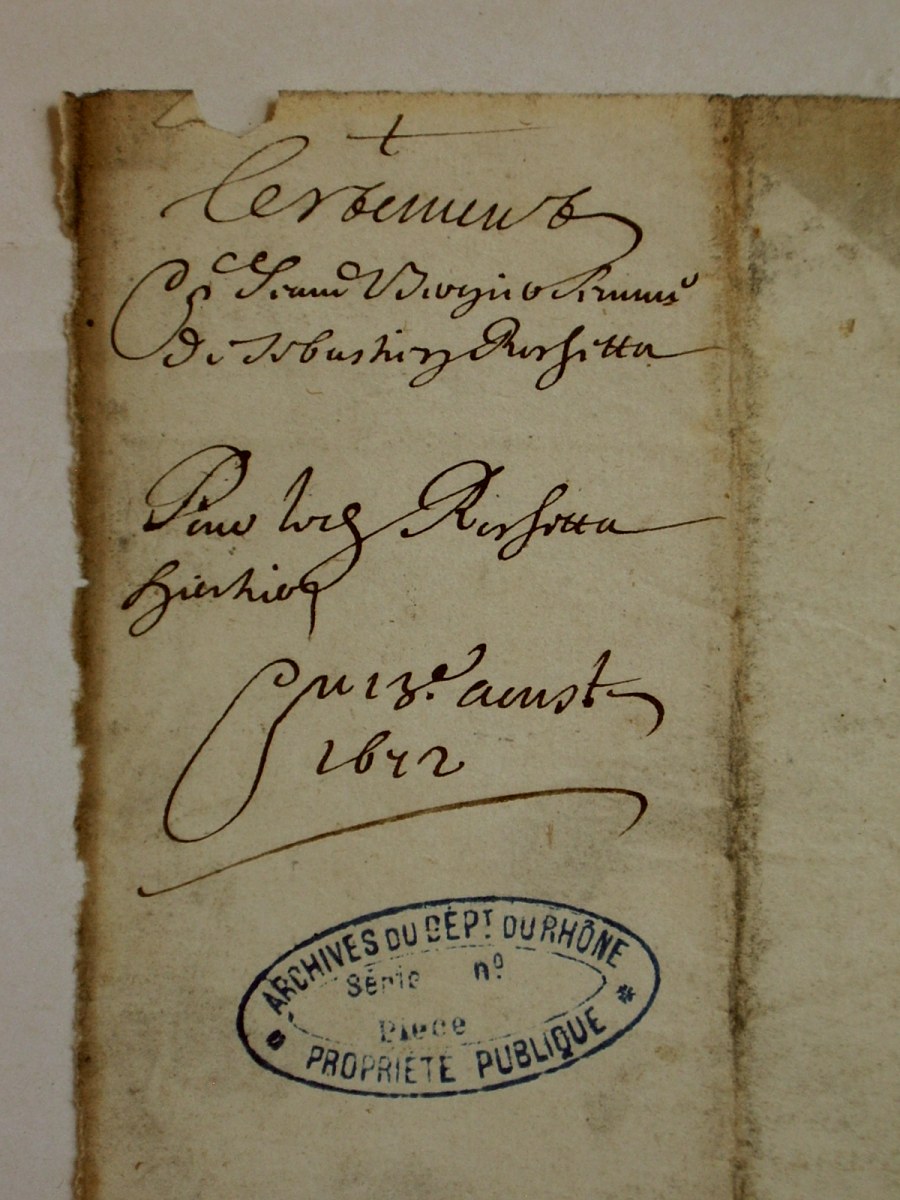 Testement
de Jeanne Bergier femme
de Sebastien Rossetta
Pour led. Rossetta
heritier
Du 13e. aoust
1672
ARCHIVES DU DÉPT. DU RHÔNE
Série nº
Piece
PROPRIÉTÉ PUBLIQUE